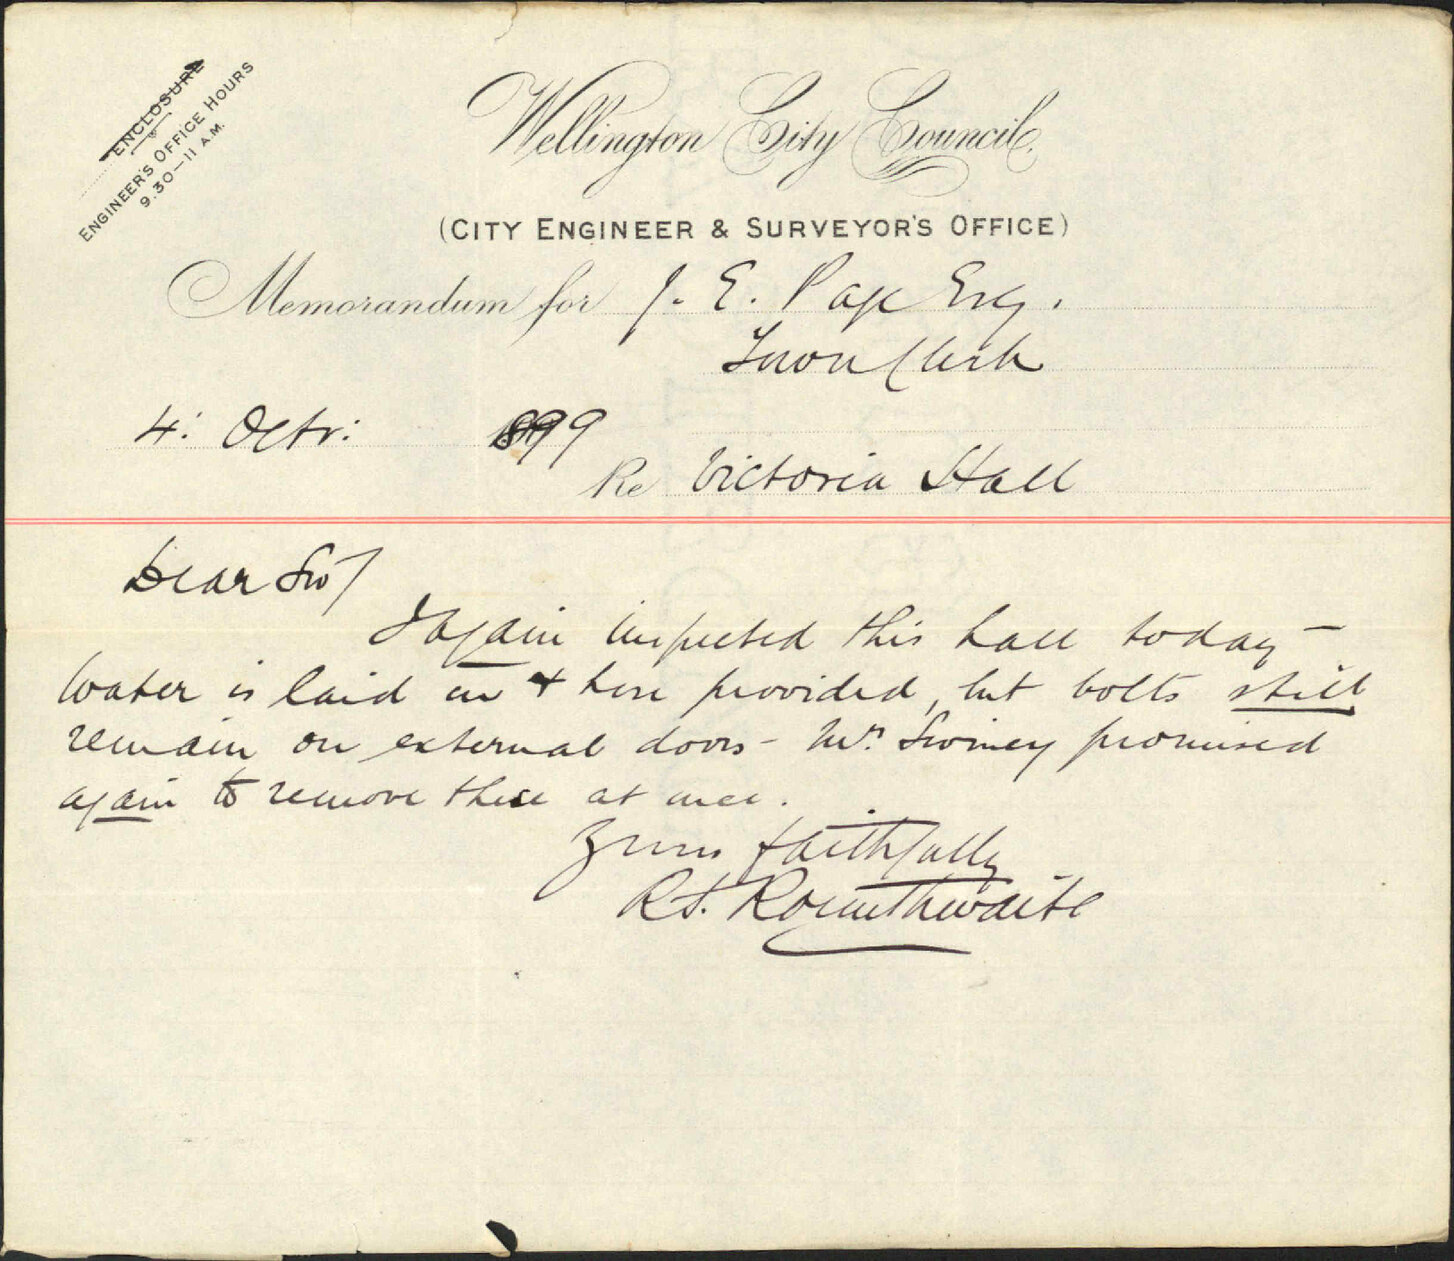 ENCLOSURE
ENGINEER'S OFFICE HOURS
9.30—11 A.M.
Wellington City Council.
(CITY ENGINEER & SURVEYOR'S OFFICE)
Memorandum for J. E. Page Esq.
Town Clerk
4: Octr: 1899
Re Victoria Hall
Dear Sir/
I again inspected this hall today –
Water is laid on & hose provided, but bolts still
remain on external doors – Mr. Swiney promised
again to remove these at once.
Yours faithfully
R.S. Rounthwaite